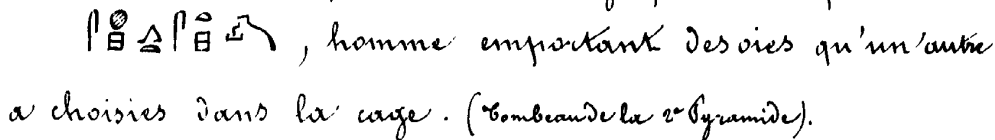 , homme emportant des oies qu'un autre
a choisies dans la cage. (Tombeau de la 2e Pyramide).